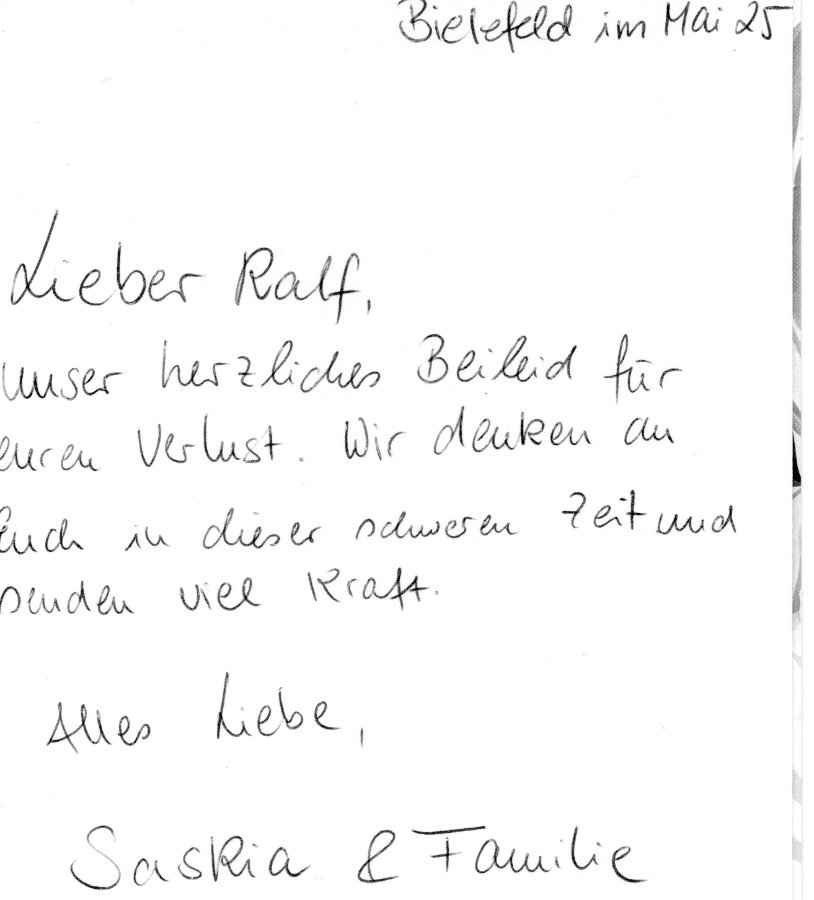 Bielefeld im Mai 25
Lieber Ralf,
unser herzliches Beileid für
euren Verlust. Wir denken an
Euch in dieser schweren Zeit und
senden viel Kraft.
Alles Liebe,
Saskia & Familie